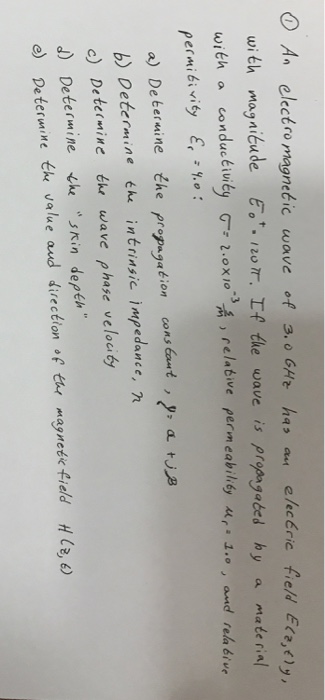 ① An electromagnetic wave of 3.0 GHz has an electric field E(z,t)y,
with magnitude E₀⁺ = 120π. If the wave is propagated by a material
with a conductivity σ = 2.0x10⁻³ S/m, relative permeability μr = 1.0, and relative
permitivity εr = 4.0:
a) Determine the propagation constant, γ = α + jβ
b) Determine the intrinsic impedance, η
c) Determine the wave phase velocity
d) Determine the "skin depth"
e) Determine the value and direction of the magnetic field H(z,t)